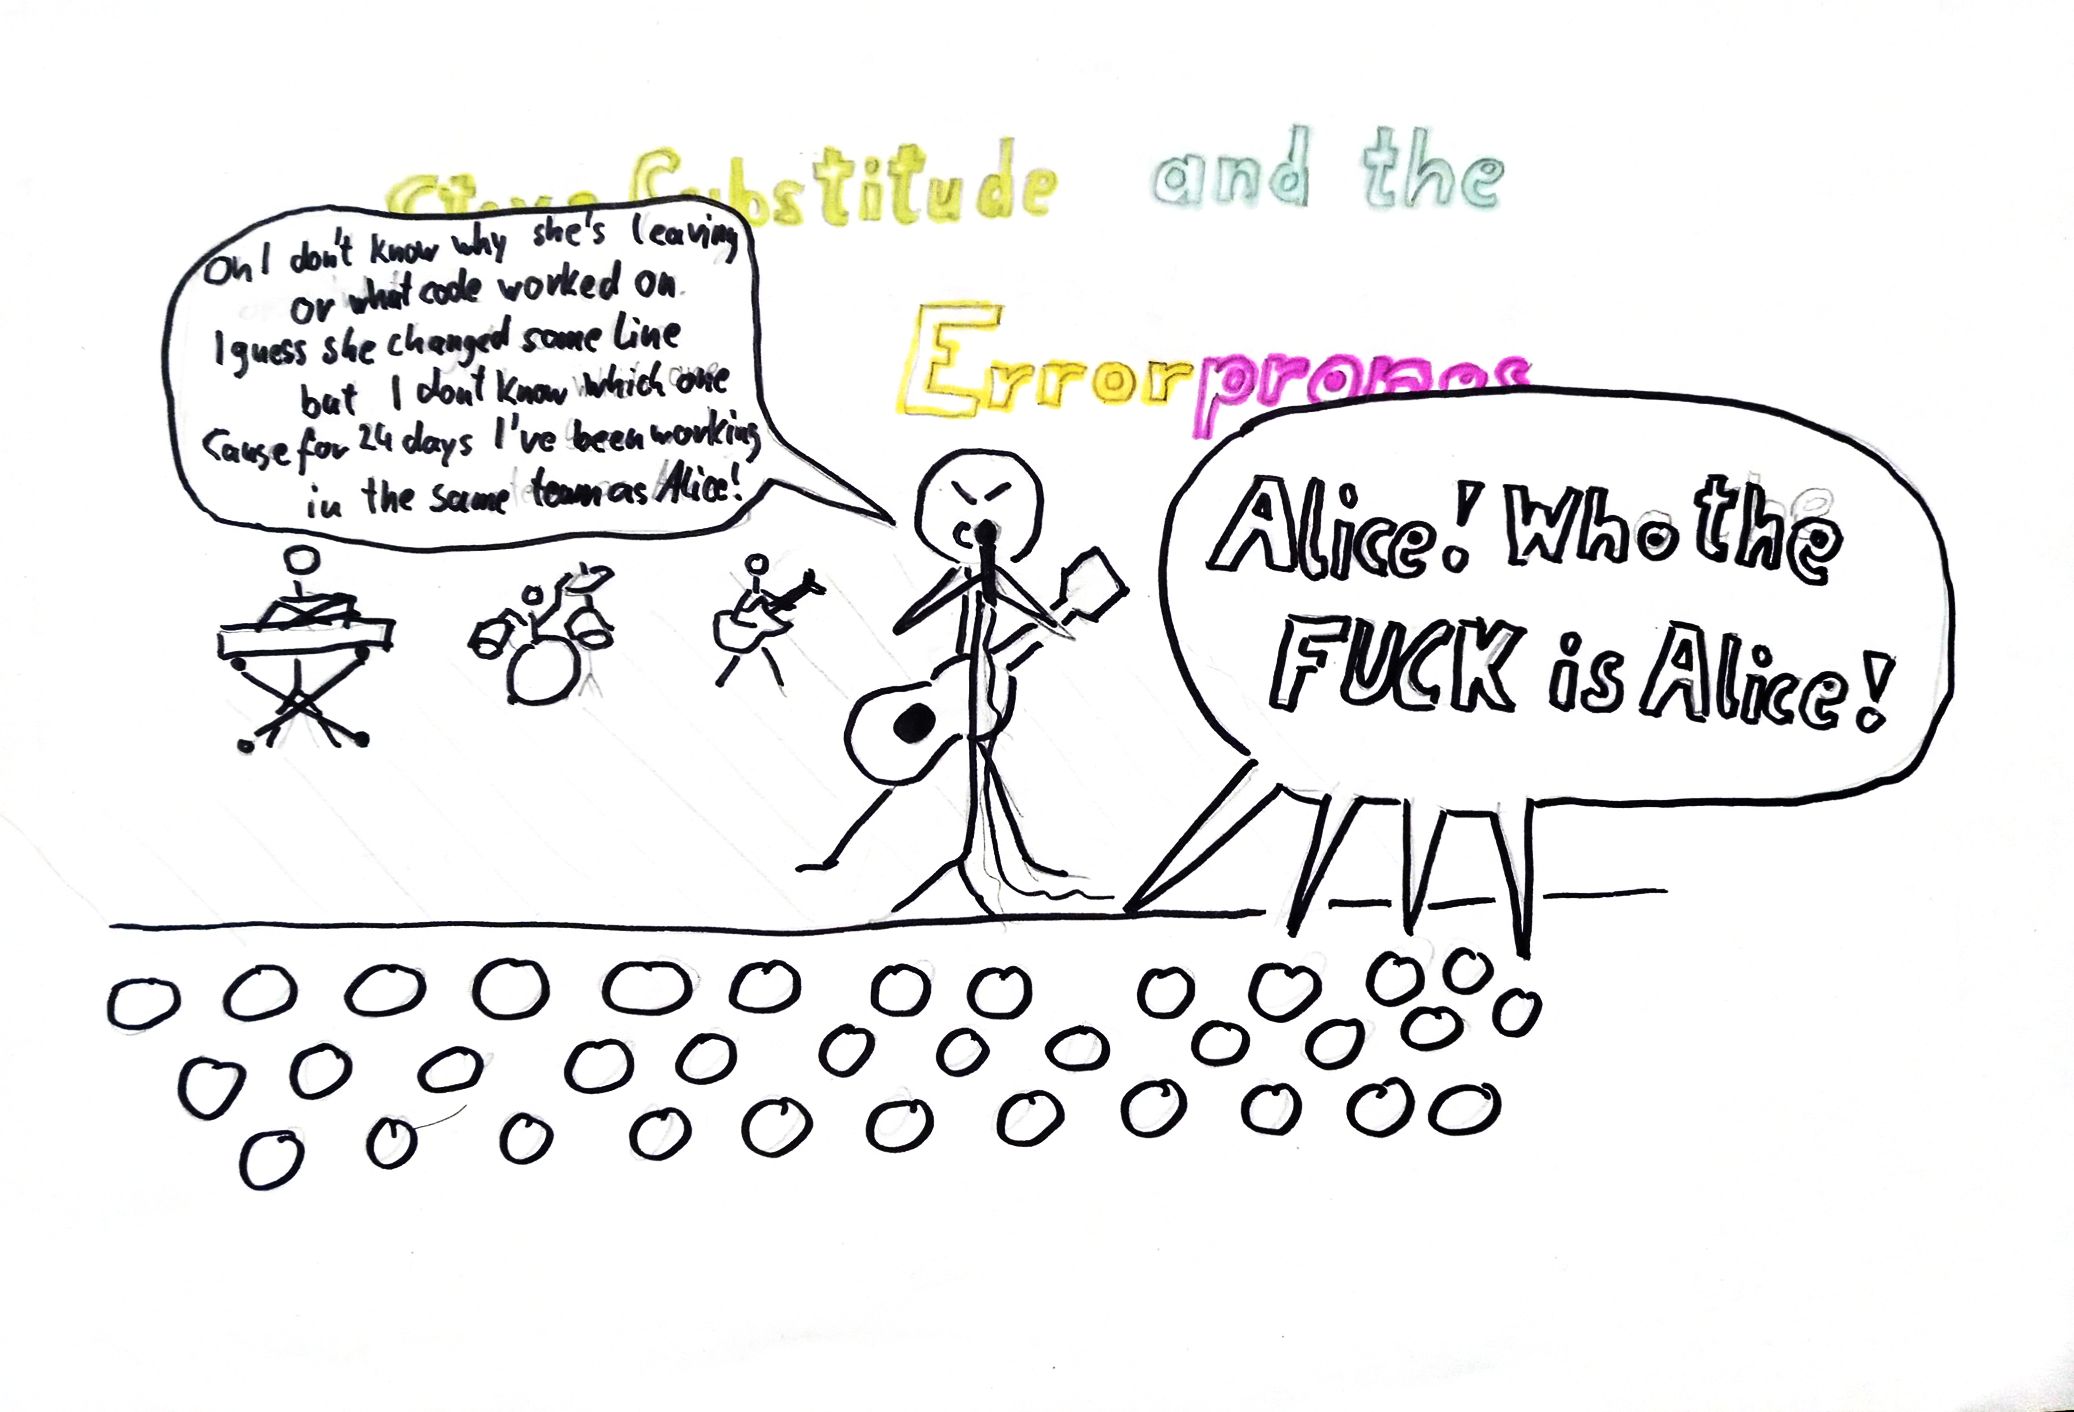 Substitude and the
Errorprones
Oh I don't know why she's leaving
or what code worked on.
I guess she changed some line
but I dont know which one
Cause for 24 days I've been working
in the same team as Alice!
Alice! Who the
FUCK is Alice!